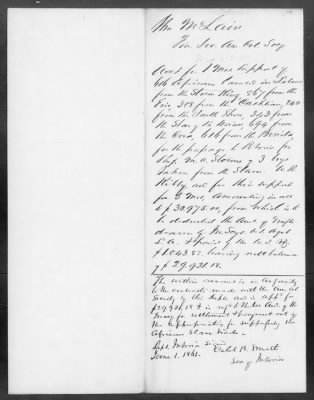 Wm McLain
Fin. Sec. Am Col Socy
Acct for 1 Mos support of
616 Africans landed in Liberia
from the Storm King, 867 from the
Erie, 318 from the Cashion, 240
from the South Shore, 343 from
the Star of the Union 694 from
the Cora, 616 from the Bonita
for the passage to Liberia per
Ship M.C. Stevens of 3 boys
taken from the Slaver W. R.
Kibby and for their support
for Mos, amounting in all
to $30,975.00, from which is to
be deducted the Amt. of drafts
drawn by McGuys U.S. Agent
$1.043.82. leaving nett balance
of $29,931.18.
The within account is in Conformity
to the contracts made with the Am Col
Society by this Dept. and is apprd for
$29,931.18 & is to the Aud. of the
Navy for settlement & payment out of
the appropriation for suppressing the
African Slave trade.
Dept. Interior
June 1. 1861.
Caleb B. Smith
Secy Interior